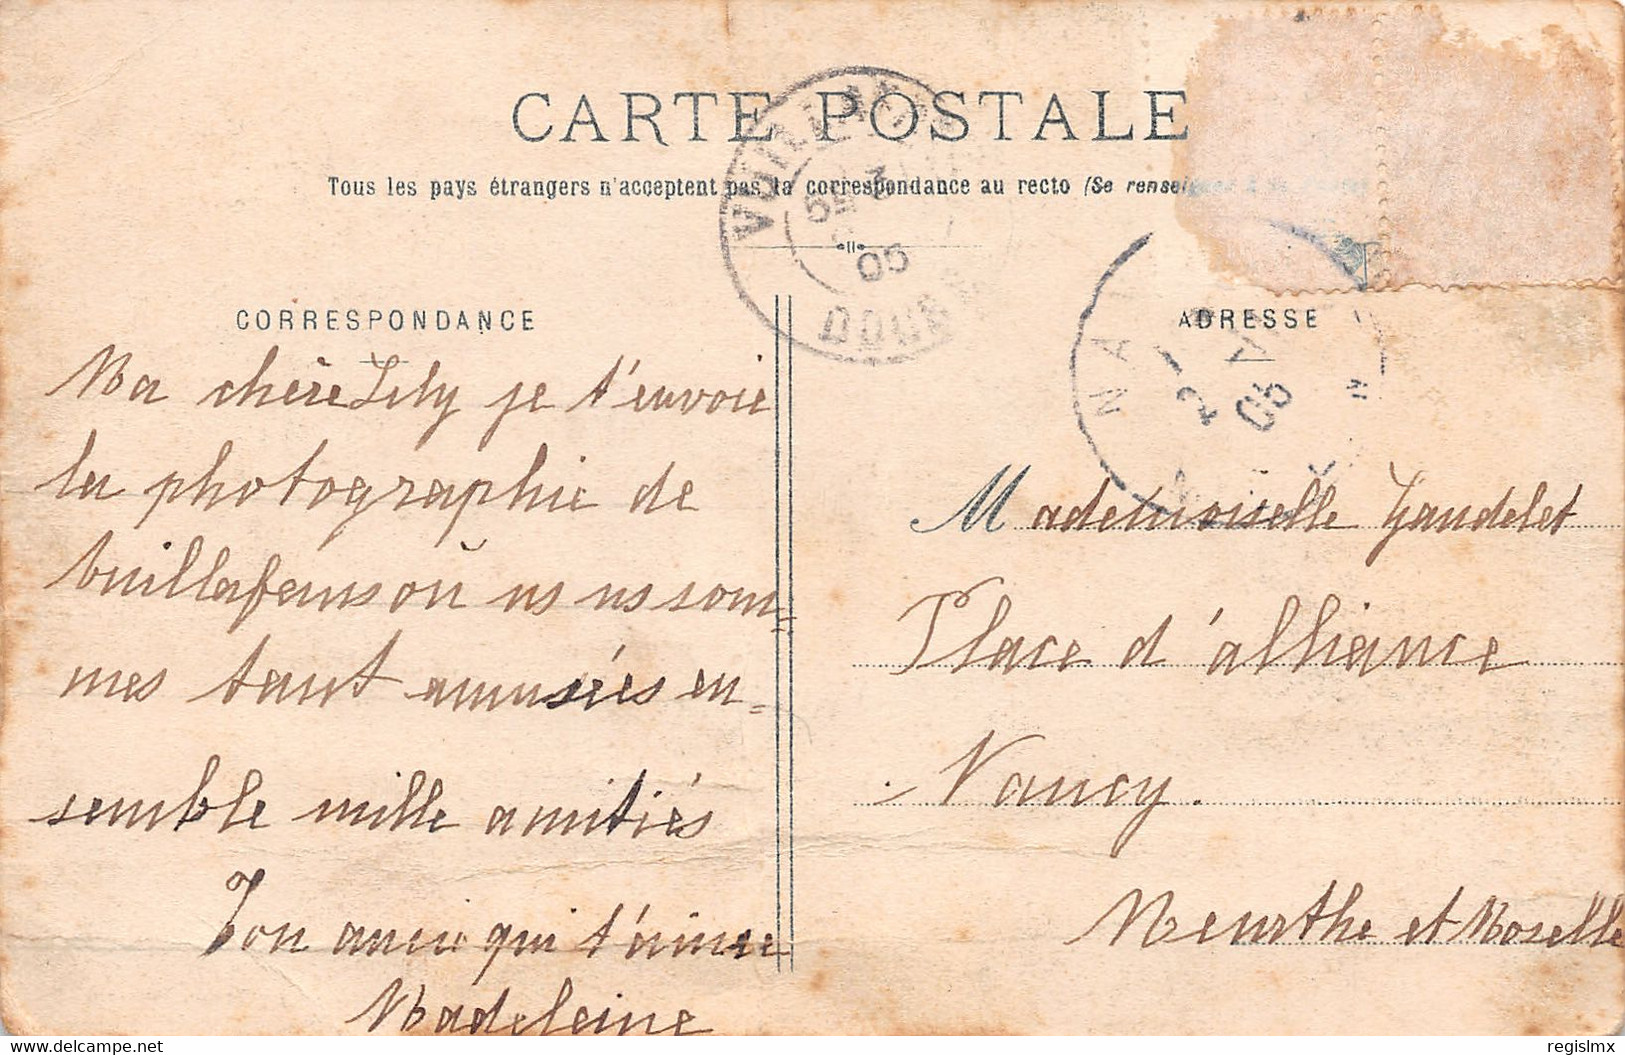 CARTE POSTALE
Tous les pays étrangers n'acceptent pas la correspondance au recto (Se renseigner à la
VUILLAFANS
05
DOUBS
CORRESPONDANCE
ADRESSE
NAN
2
05
Ma chère Lily je t'envoie
la photographie de
Vuillafans où ns ns som=
mes tant amusées en=
semble mille amitiés
Ton amie qui t'aime
Madeleine
Mademoiselle Gaudelet
Place d'alliance
Nancy.
Meurthe et Moselle
delcampe.net
regislmx